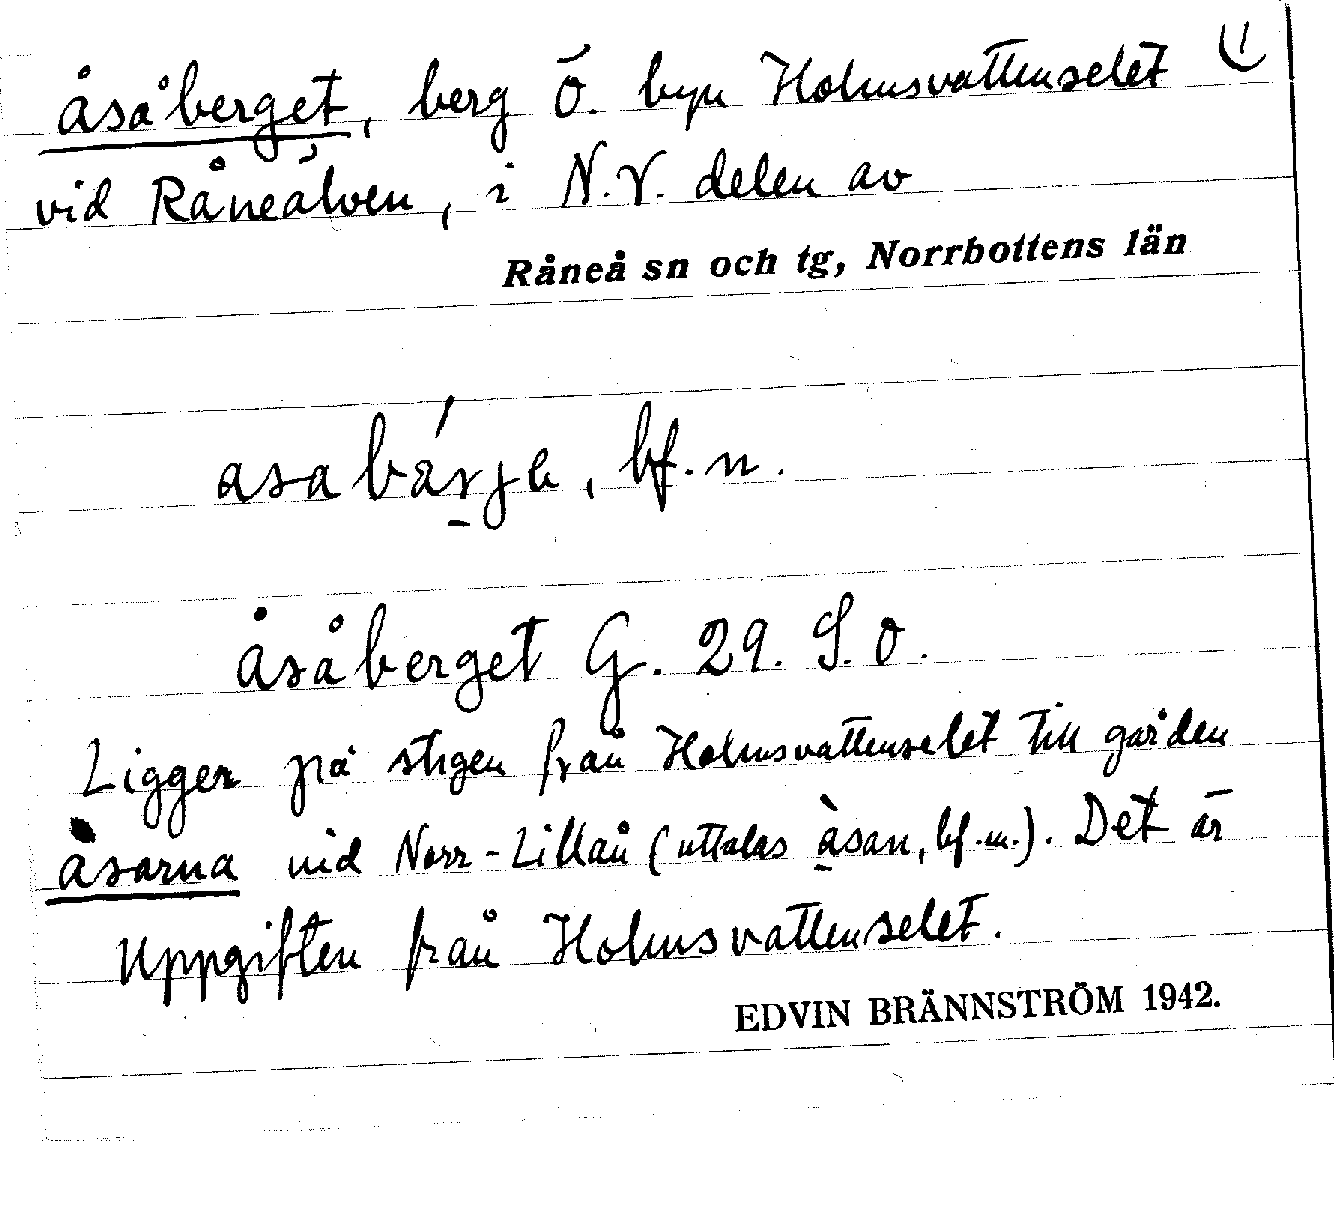 Åsåberget, berg Ö. byn Holmsvattenselet 1
vid Råneälven, i N.V. delen av
Råneå sn och tg, Norrbottens län
asabárje, bf. n.
Åsåberget G. 29. S.O.
Ligger på stigen från Holmsvattenselet till gården
Åsarna vid Norr-Lillån (uttalas àsan, bf.m.). Det är
Uppgiften från Holmsvattenselet.
EDVIN BRÄNNSTRÖM 1942.